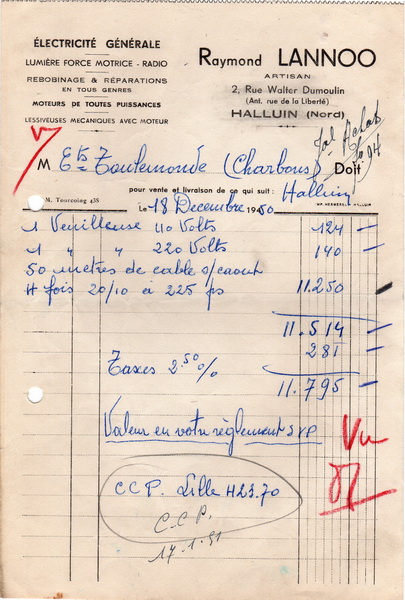 ÉLECTRICITÉ GÉNÉRALE
LUMIÈRE FORCE MOTRICE - RADIO
REBOBINAGE & RÉPARATIONS
EN TOUS GENRES
MOTEURS DE TOUTES PUISSANCES
LESSIVEUSES MECANIQUES AVEC MOTEUR
Raymond LANNOO
ARTISAN
2, Rue Walter Dumoulin
(Ant. rue de la Liberté)
HALLUIN (Nord)
M Ets Toulemonde (Charbons) Doit
pour vente et livraison de ce qui suit : Halluin
M. Tourcoing 458
Le 18 Decembre 1950
1 Veilleuse 110 Volts 124 —
1 " " 220 Volts 140 —
50 metres de cable s/caout
4 fois 20/10 à 225 frs 11.250 —
11.514 —
Taxes 2.50 % 281 —
11.795 —
Valeur en votre règlement SVP
Vu
CCP. Lille 423.70
C.C.P.
17.1.51